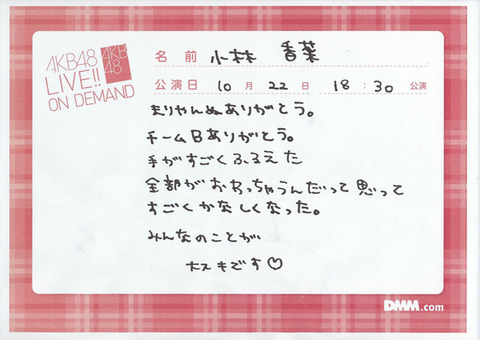 AKB48
LIVE!!
ON DEMAND
AKB
48
名前 小林 香菜
公演日 10月22日 18:30公演
まりやんぬありがとう。
チームBありがとう。
手がすごくふるえた
全部がおわっちゃうんだって思って
すごくかなしくなった。
みんなのことが
大スキです♡
DMM.com